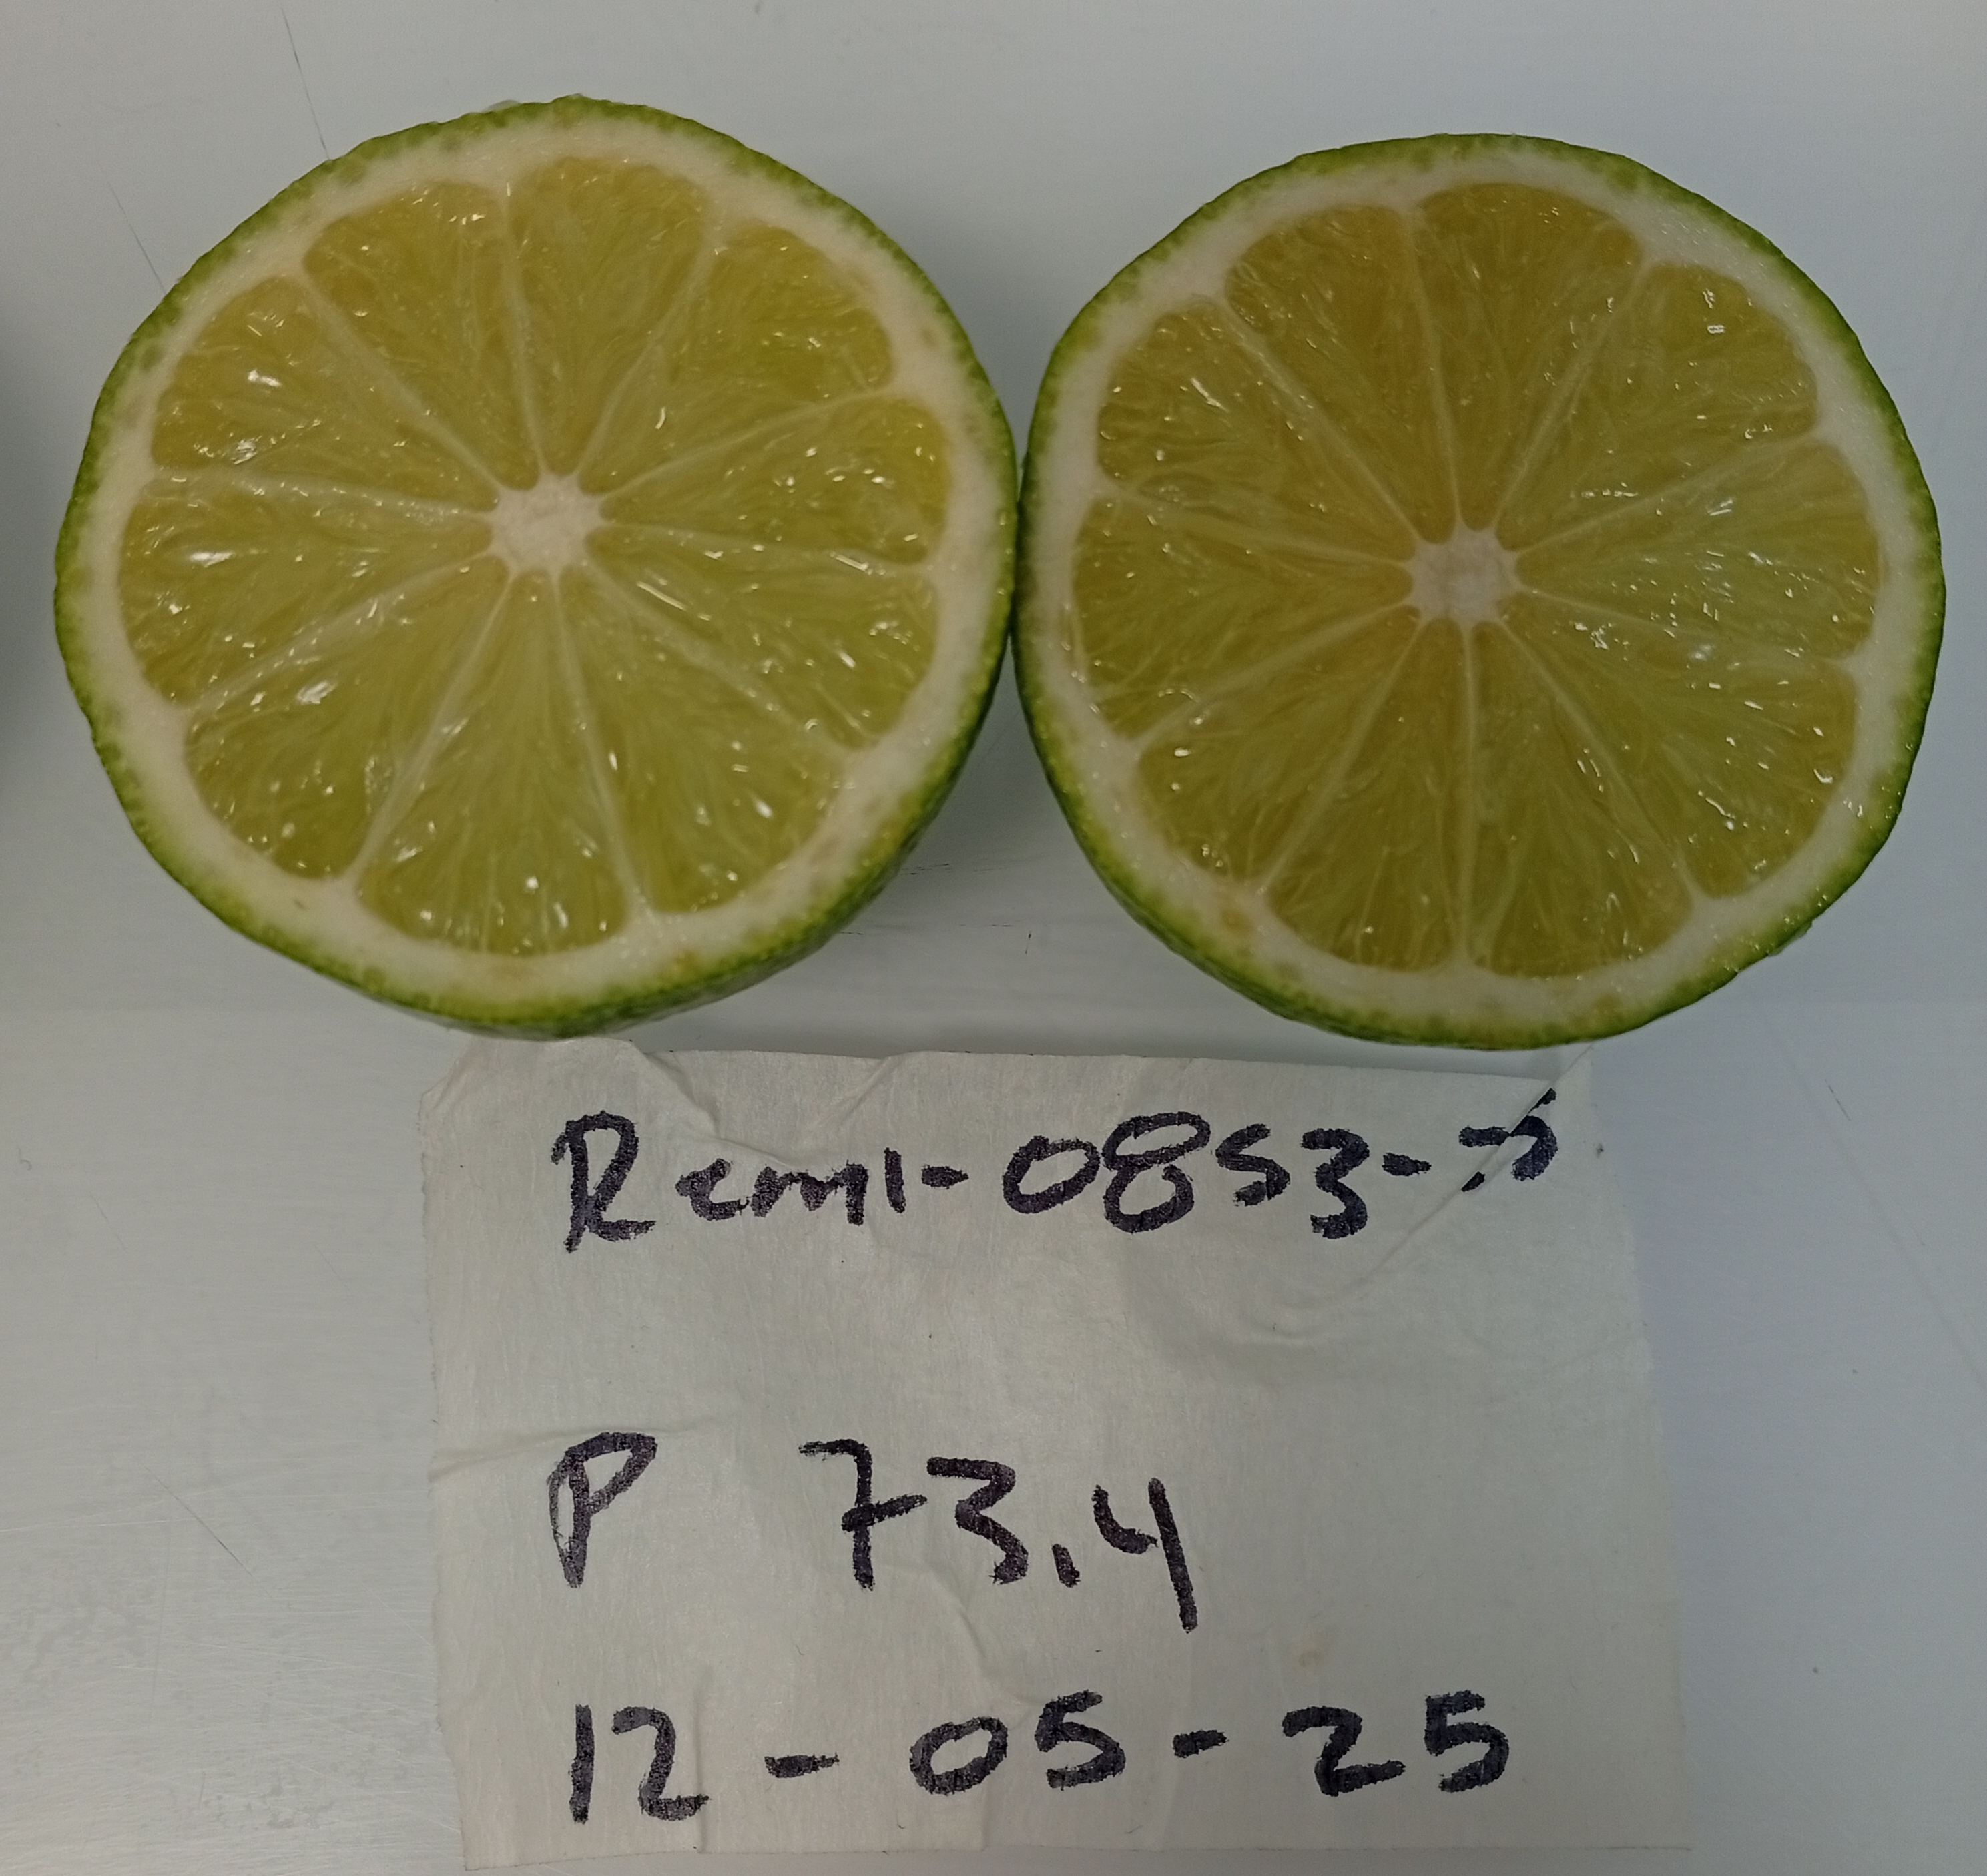 Remi-0853-5
P 73.4
12-05-25